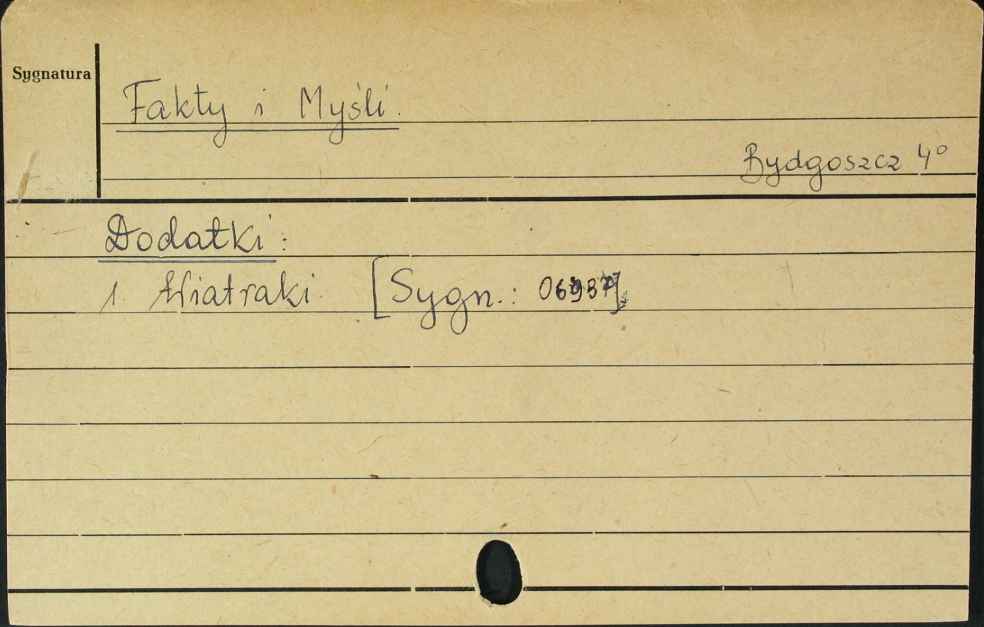 Sygnatura
Fakty i Myśli.
Bydgoszcz 4°
Dodatki:
1. Wiatraki. [Sygn.: